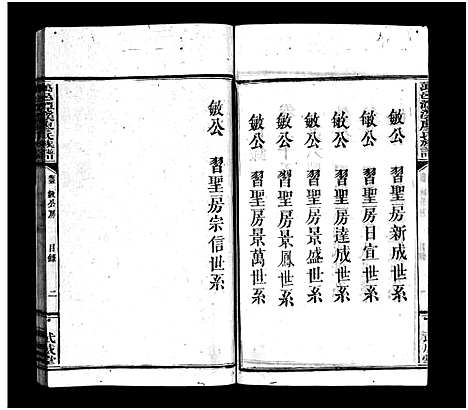 敏公 習聖房新成世系
敏公 習聖房日宣世系
敏公 習聖房達成世系
敏公 習聖房景盛世系
敏公 習聖房景鳳世系
敏公 習聖房景萬世系
敏公 習聖房宗信世系
敏公房 目錄 二